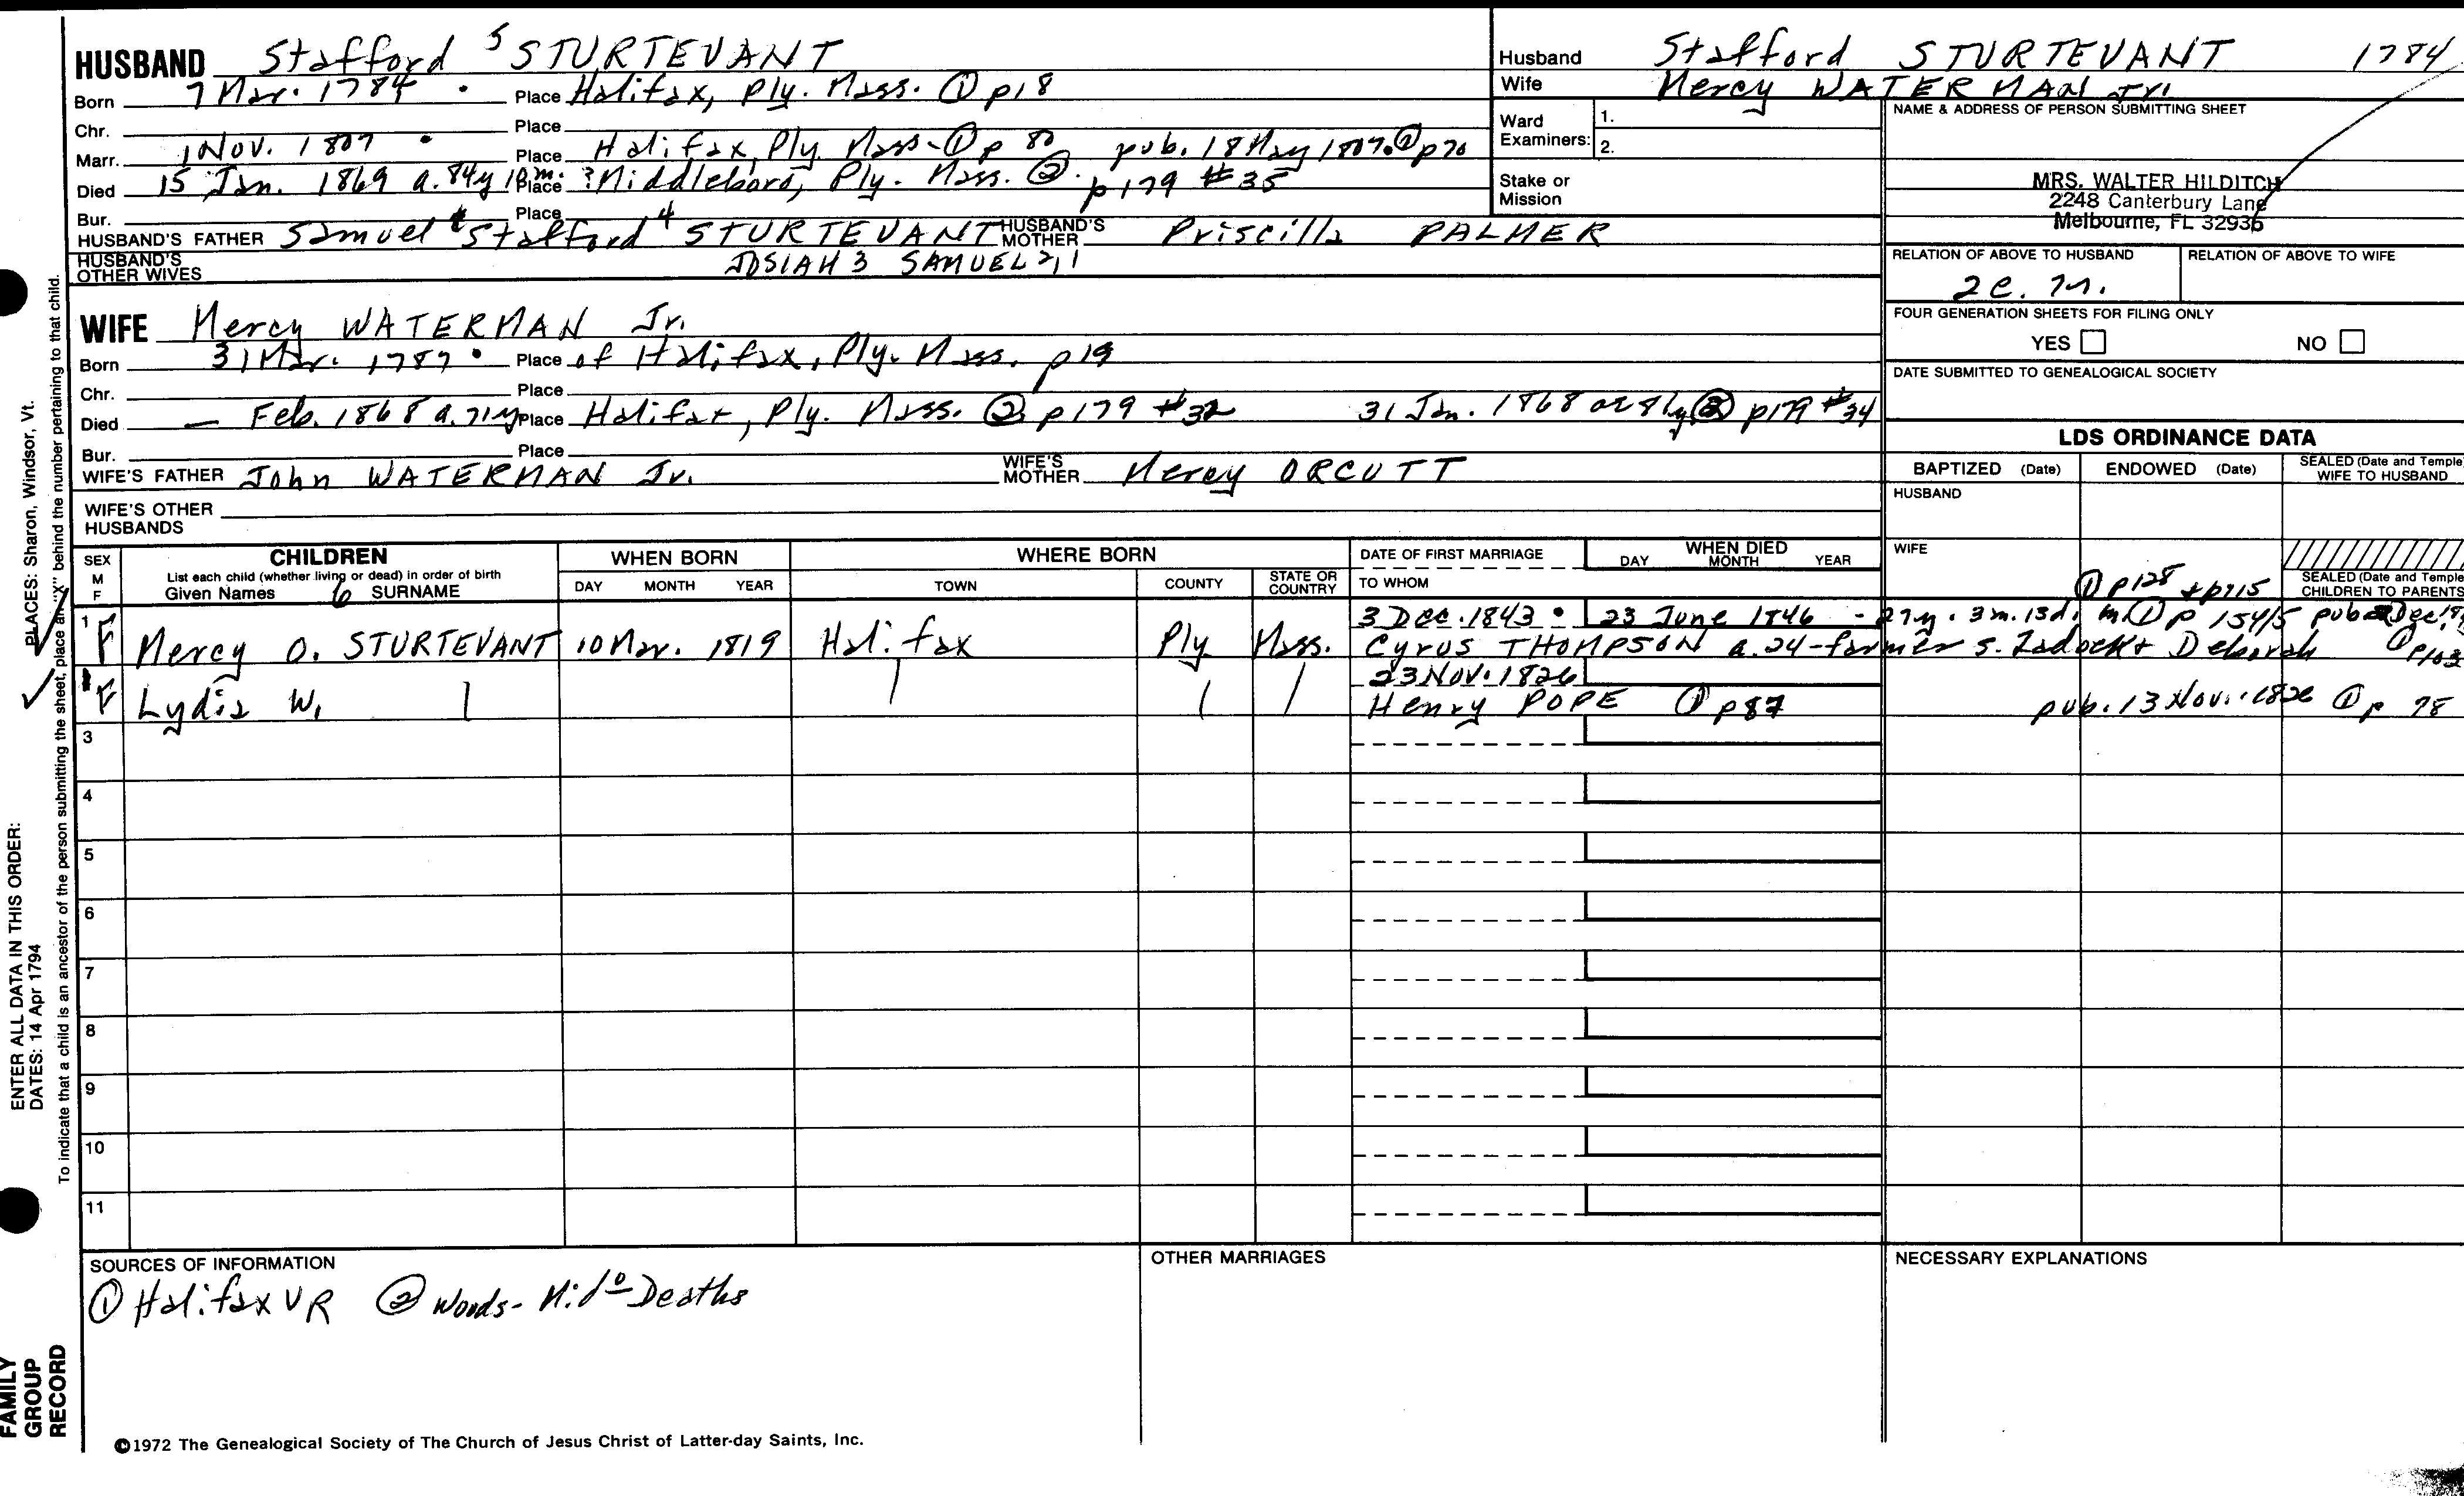 HUSBAND Stafford 5 STURTEVANT
Born 7 Mar. 1784 • Place Halifax, Ply. Mass. ① p18
Chr. Place
Marr. 1 Nov. 1807 • Place Halifax, Ply. Mass- ① p 80 pub. 18 May 1807. ① p70
Died 15 Jan. 1869 a. 84y 10m. Place ? Middleboro, Ply. Mass. ② p179 #35
Bur. Place
HUSBAND'S FATHER Samuel Stafford 4 STURTEVANT HUSBAND'S MOTHER Priscilla PALMER
HUSBAND'S OTHER WIVES JOSIAH 3 SAMUEL 2,1
WIFE Mercy WATERMAN Jr.
Born 31 Mar. 1787 • Place of Halifax, Ply. Mass. p19
Chr. Place
Died — Feb. 1868 a. 71y Place Halifax, Ply. Mass. ② p179 #32 31 Jan. 1868 ae 81y ② p179 #34
Bur. Place
WIFE'S FATHER John WATERMAN Jr. WIFE'S MOTHER Mercy ORCUTT
WIFE'S OTHER HUSBANDS
Husband Stafford STURTEVANT 1784
Wife Mercy WATERMAN Jr.
Ward Examiners: 1.
2.
Stake or Mission
NAME & ADDRESS OF PERSON SUBMITTING SHEET
MRS. WALTER HILDITCH
2248 Canterbury Lane
Melbourne, FL 32935
RELATION OF ABOVE TO HUSBAND RELATION OF ABOVE TO WIFE
FOUR GENERATION SHEETS FOR FILING ONLY
YES NO
DATE SUBMITTED TO GENEALOGICAL SOCIETY
LDS ORDINANCE DATA
BAPTIZED (Date) ENDOWED (Date) SEALED (Date and Temple) WIFE TO HUSBAND
HUSBAND
WIFE
① p128 + p715
SEALED (Date and Temple) CHILDREN TO PARENTS
SEX M F
CHILDREN
List each child (whether living or dead) in order of birth
Given Names 6 SURNAME
WHEN BORN
DAY MONTH YEAR
WHERE BORN
TOWN COUNTY STATE OR COUNTRY
DATE OF FIRST MARRIAGE
TO WHOM
WHEN DIED
DAY MONTH YEAR
3 Dec. 1843 • 23 June 1846 - 27y. 3m. 13d. m ① p 154/5 pub Dec
1 F Mercy O. STURTEVANT 10 Mar. 1819 Halifax Ply Mass. Cyrus THOMPSON a. 24-farmer s. Zadock + Deborah ① p103
23 Nov. 1826
F Lydia W. Henry POPE ① p87 pub. 13 Nov. 1826 ① p 78
3
4
5
6
7
8
9
10
11
SOURCES OF INFORMATION
① Halifax VR ② Woods- Mido Deaths
OTHER MARRIAGES
NECESSARY EXPLANATIONS
©1972 The Genealogical Society of The Church of Jesus Christ of Latter-day Saints, Inc.
ENTER ALL DATA IN THIS ORDER:
DATES: 14 Apr 1794 PLACES: Sharon, Windsor, Vt.
To indicate that a child is an ancestor of the person submitting the sheet, place an "X" behind the number pertaining to that child.
FAMILY GROUP RECORD